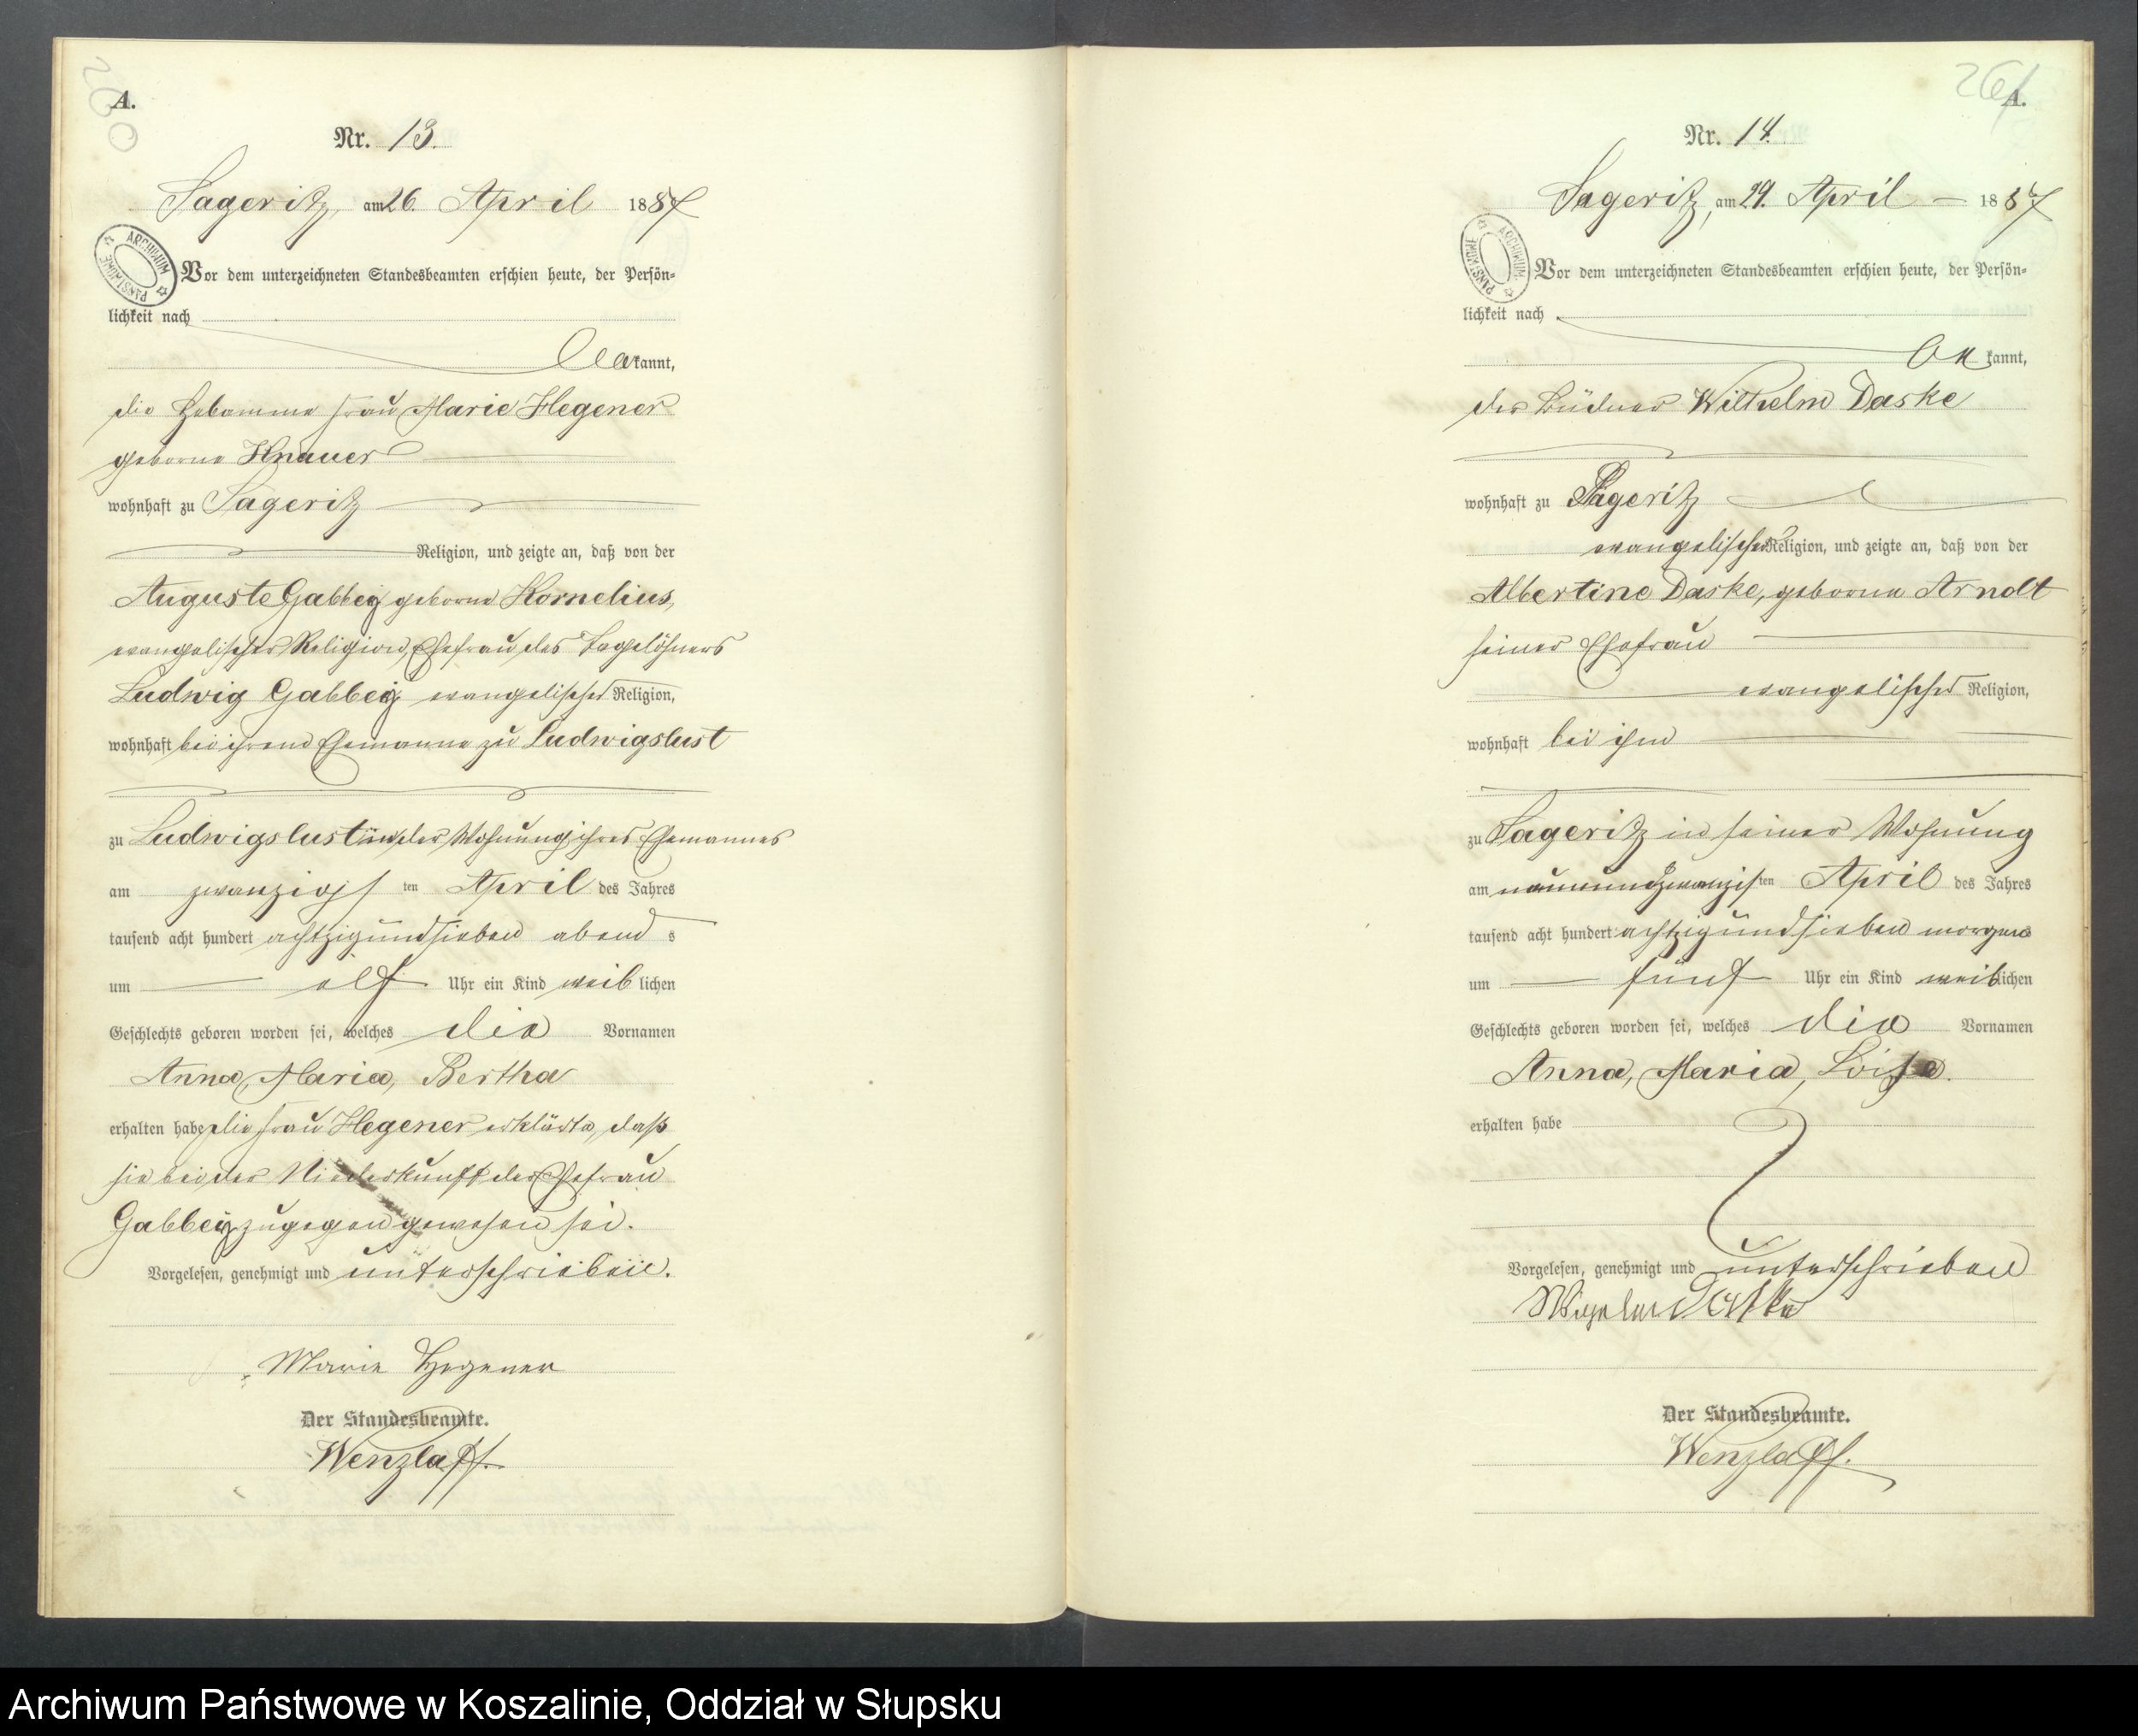 260
A.
Nr. 13.
Sageritz, am 26. April 1887
ARCHIWUM PAŃSTWOWE
Vor dem unterzeichneten Standesbeamten erschien heute, der Persön=
lichkeit nach
kannt,
die Hebamme Frau Marie Hegener
geborne Knauer
wohnhaft zu Sageritz
Religion, und zeigte an, daß von der
Auguste Gabbey geborne Kornelius,
evangelischer Religion, Ehefrau des Tagelöhners
Ludwig Gabbey evangelischer Religion,
wohnhaft bei ihrem Ehemanne zu Ludwigslust
zu Ludwigslust in der Wohnung ihres Ehemannes
am zwanzigsten April des Jahres
tausend acht hundert achtzigundsieben abends
um elf Uhr ein Kind weiblichen
Geschlechts geboren worden sei, welches die Vornamen
Anna, Maria, Bertha
erhalten habe, die Frau Hegener erklärte, daß
sie bei der Niederkunft der Ehefrau
Gabbey zugegen gewesen sei.
Vorgelesen, genehmigt und unterschrieben.
Marie Hegener
Der Standesbeamte.
Wenzlaff.
261
A.
Nr. 14.
Sageritz, am 29. April 1887
ARCHIWUM PAŃSTWOWE
Vor dem unterzeichneten Standesbeamten erschien heute, der Persön=
lichkeit nach
kannt,
der Büdner Wilhelm Daske
wohnhaft zu Sageritz
evangelischer Religion, und zeigte an, daß von der
Albertine Daske, geborne Arndt
seiner Ehefrau
evangelischer Religion,
wohnhaft bei ihm
zu Sageritz in seiner Wohnung
am neunundzwanzigsten April des Jahres
tausend acht hundert achtzigundsieben morgens
um fünf Uhr ein Kind weiblichen
Geschlechts geboren worden sei, welches die Vornamen
Anna, Maria,
erhalten habe
Vorgelesen, genehmigt und unterschrieben
Wilhelm Daske
Der Standesbeamte.
Wenzlaff.
Archiwum Państwowe w Koszalinie, Oddział w Słupsku